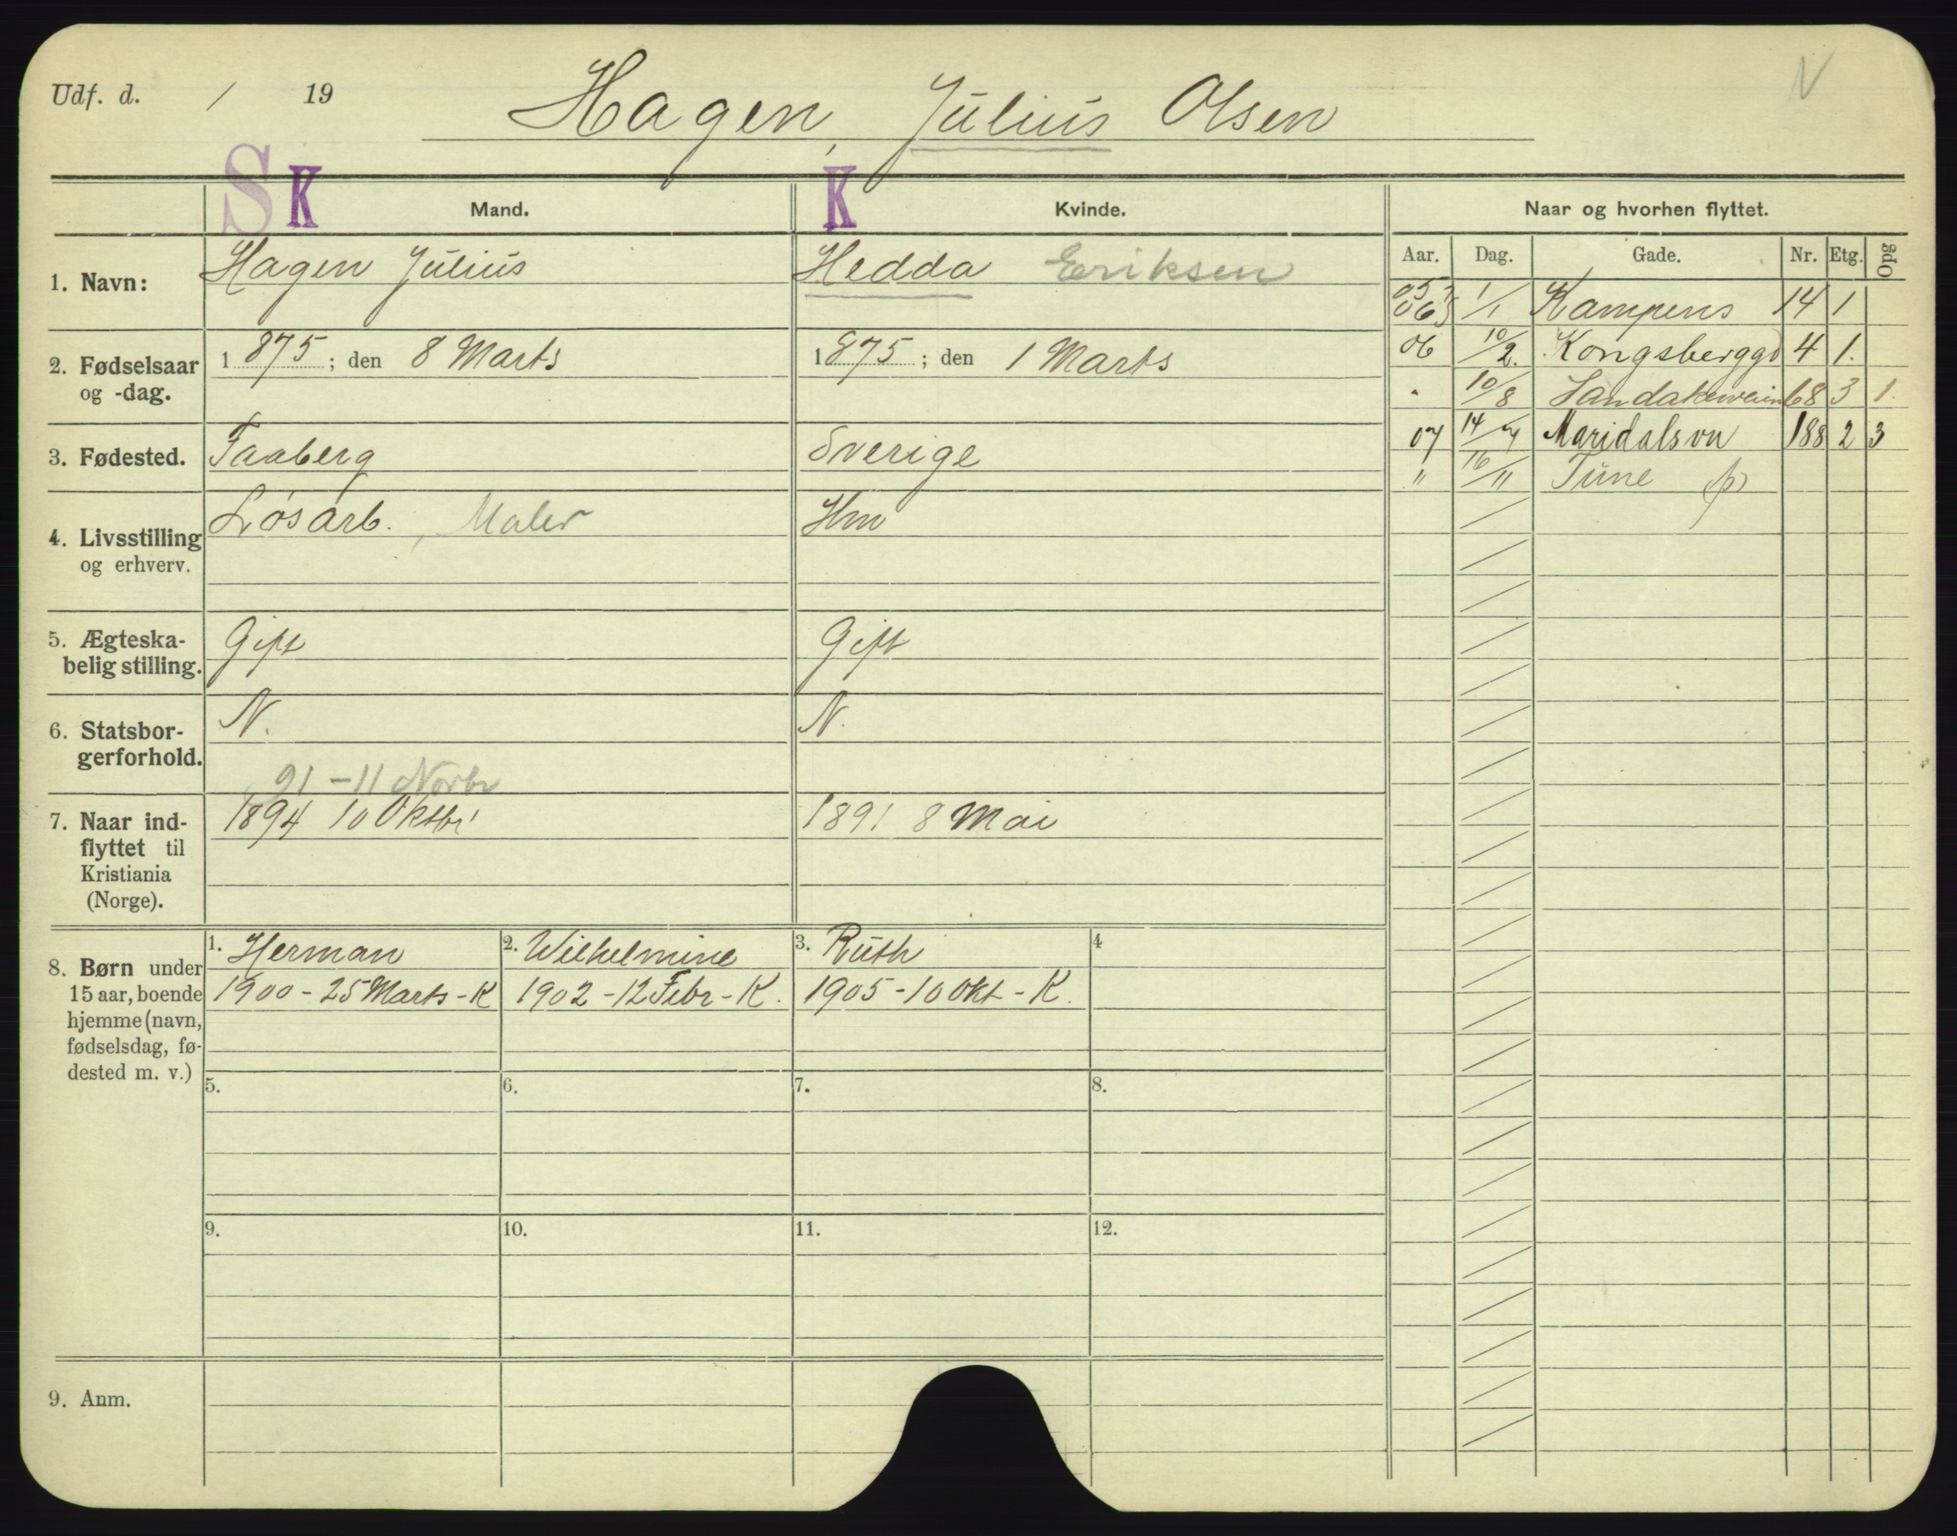 Udf. d. / 19 Hagen, Julius Olsen N
S K Mand. K Kvinde. Naar og hvorhen flyttet.
Aar. Dag. Gade. Nr. Etg. Opg
1. Navn: Hagen Julius Hedda Eriksen
2. Fødselsaar og -dag. 1875; den 8 Marts 1875; den 1 Marts
3. Fødested. Faaberg Sverige
4. Livsstilling og erhverv. Løsarb., Maler Hm
5. Ægteskabelig stilling. Gift Gift
6. Statsborgerforhold. N. N.
91 - 11 Novbr
7. Naar indflyttet til Kristiania (Norge). 1894 10 Oktbr 1891 8 Mai
8. Børn under 15 aar, boende hjemme (navn, fødselsdag, fødested m. v.)
1. Herman 2. Wilhelmine 3. Ruth 4
1900 - 25 Marts - K 1902 - 12 Febr - K. 1905 - 10 Okt - K.
5. 6. 7. 8.
9. 10. 11. 12.
9. Anm.
05 06 1/1 Kampens 14 1
06 10/2. Kongsberggd 4 1.
" 10/8 Sandakerveien 68 3 1.
07 14/7 Maridalsvn 188 2 3
" 16/11 Tune (p)